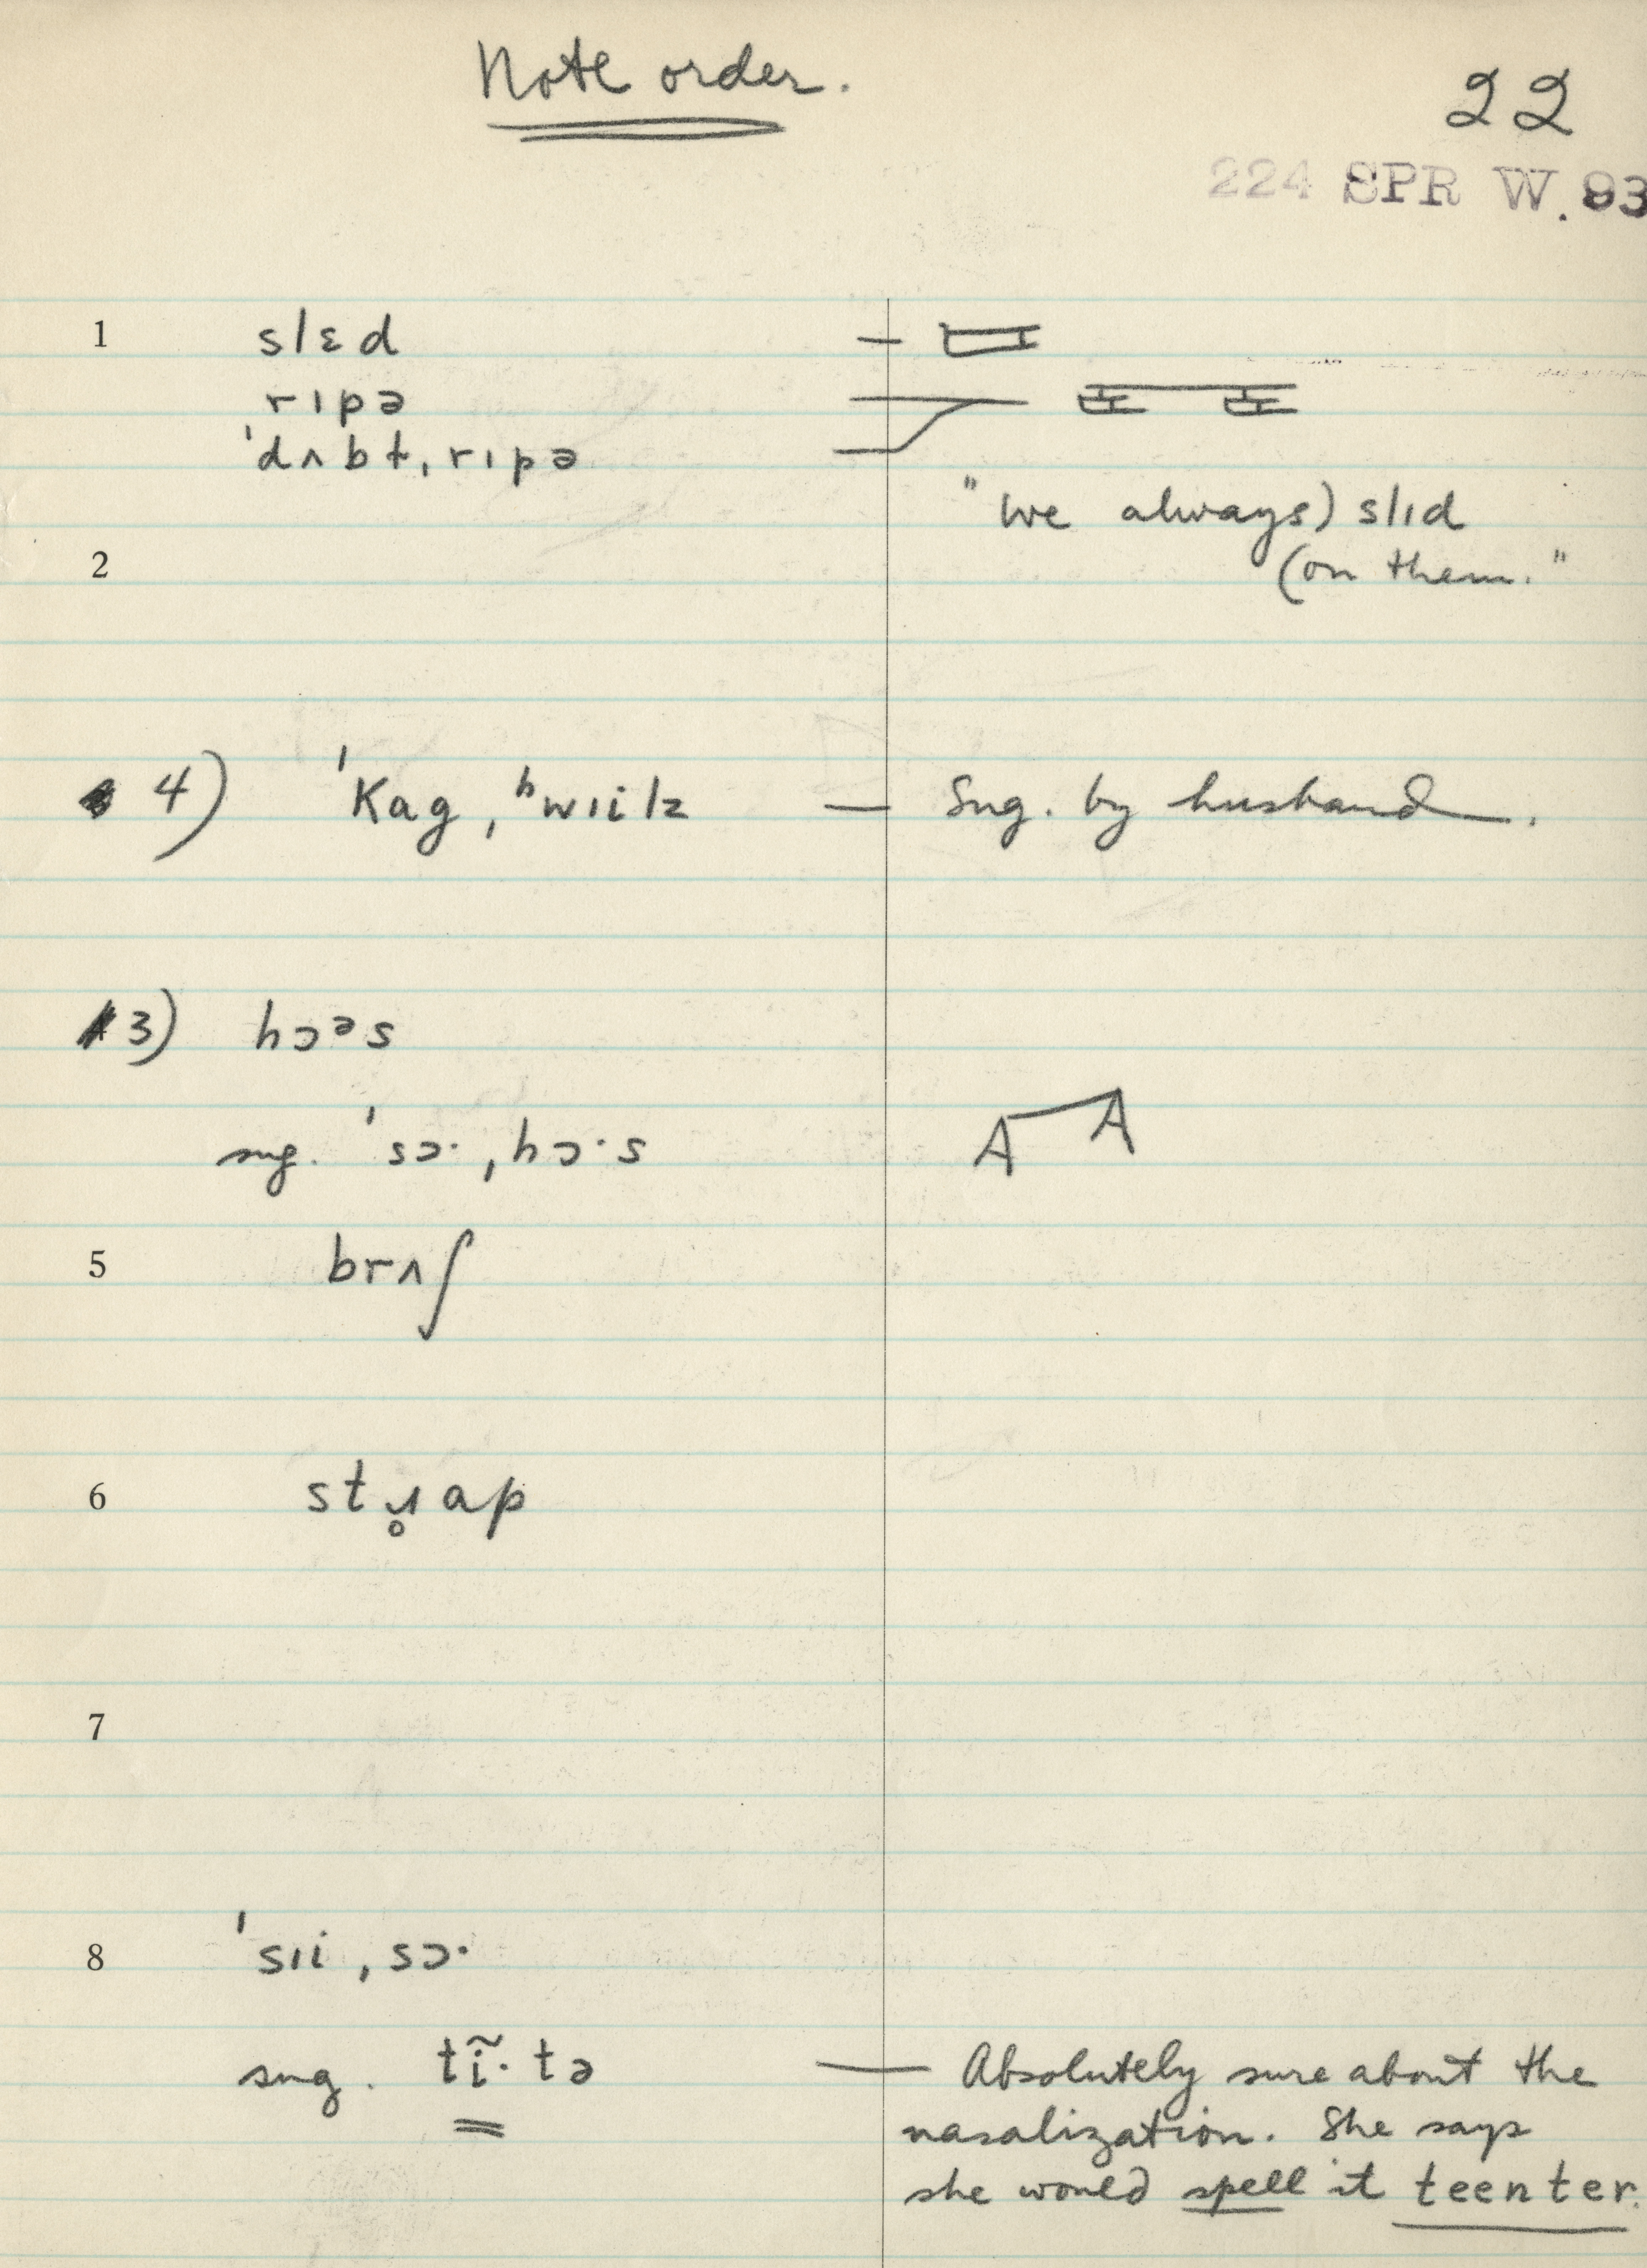 Note order.
22
224 SPR W. 93
1 slɛd —
rɪpə
ˈdʌbɫˌrɪpə
"We always) slɪd
2 (on them."
4) ˈKagˌʰwɪilz — Sug. by husband.
3) hɔᵊs
sug. ˈsɔ·ˌhɔ·s
5 brʌʃ
6 stɹ̥ap
7
8 ˈsɪiˌsɔ·
sug. tĩ·tə — Absolutely sure about the
nasalization. She says
she would spell it teenter.